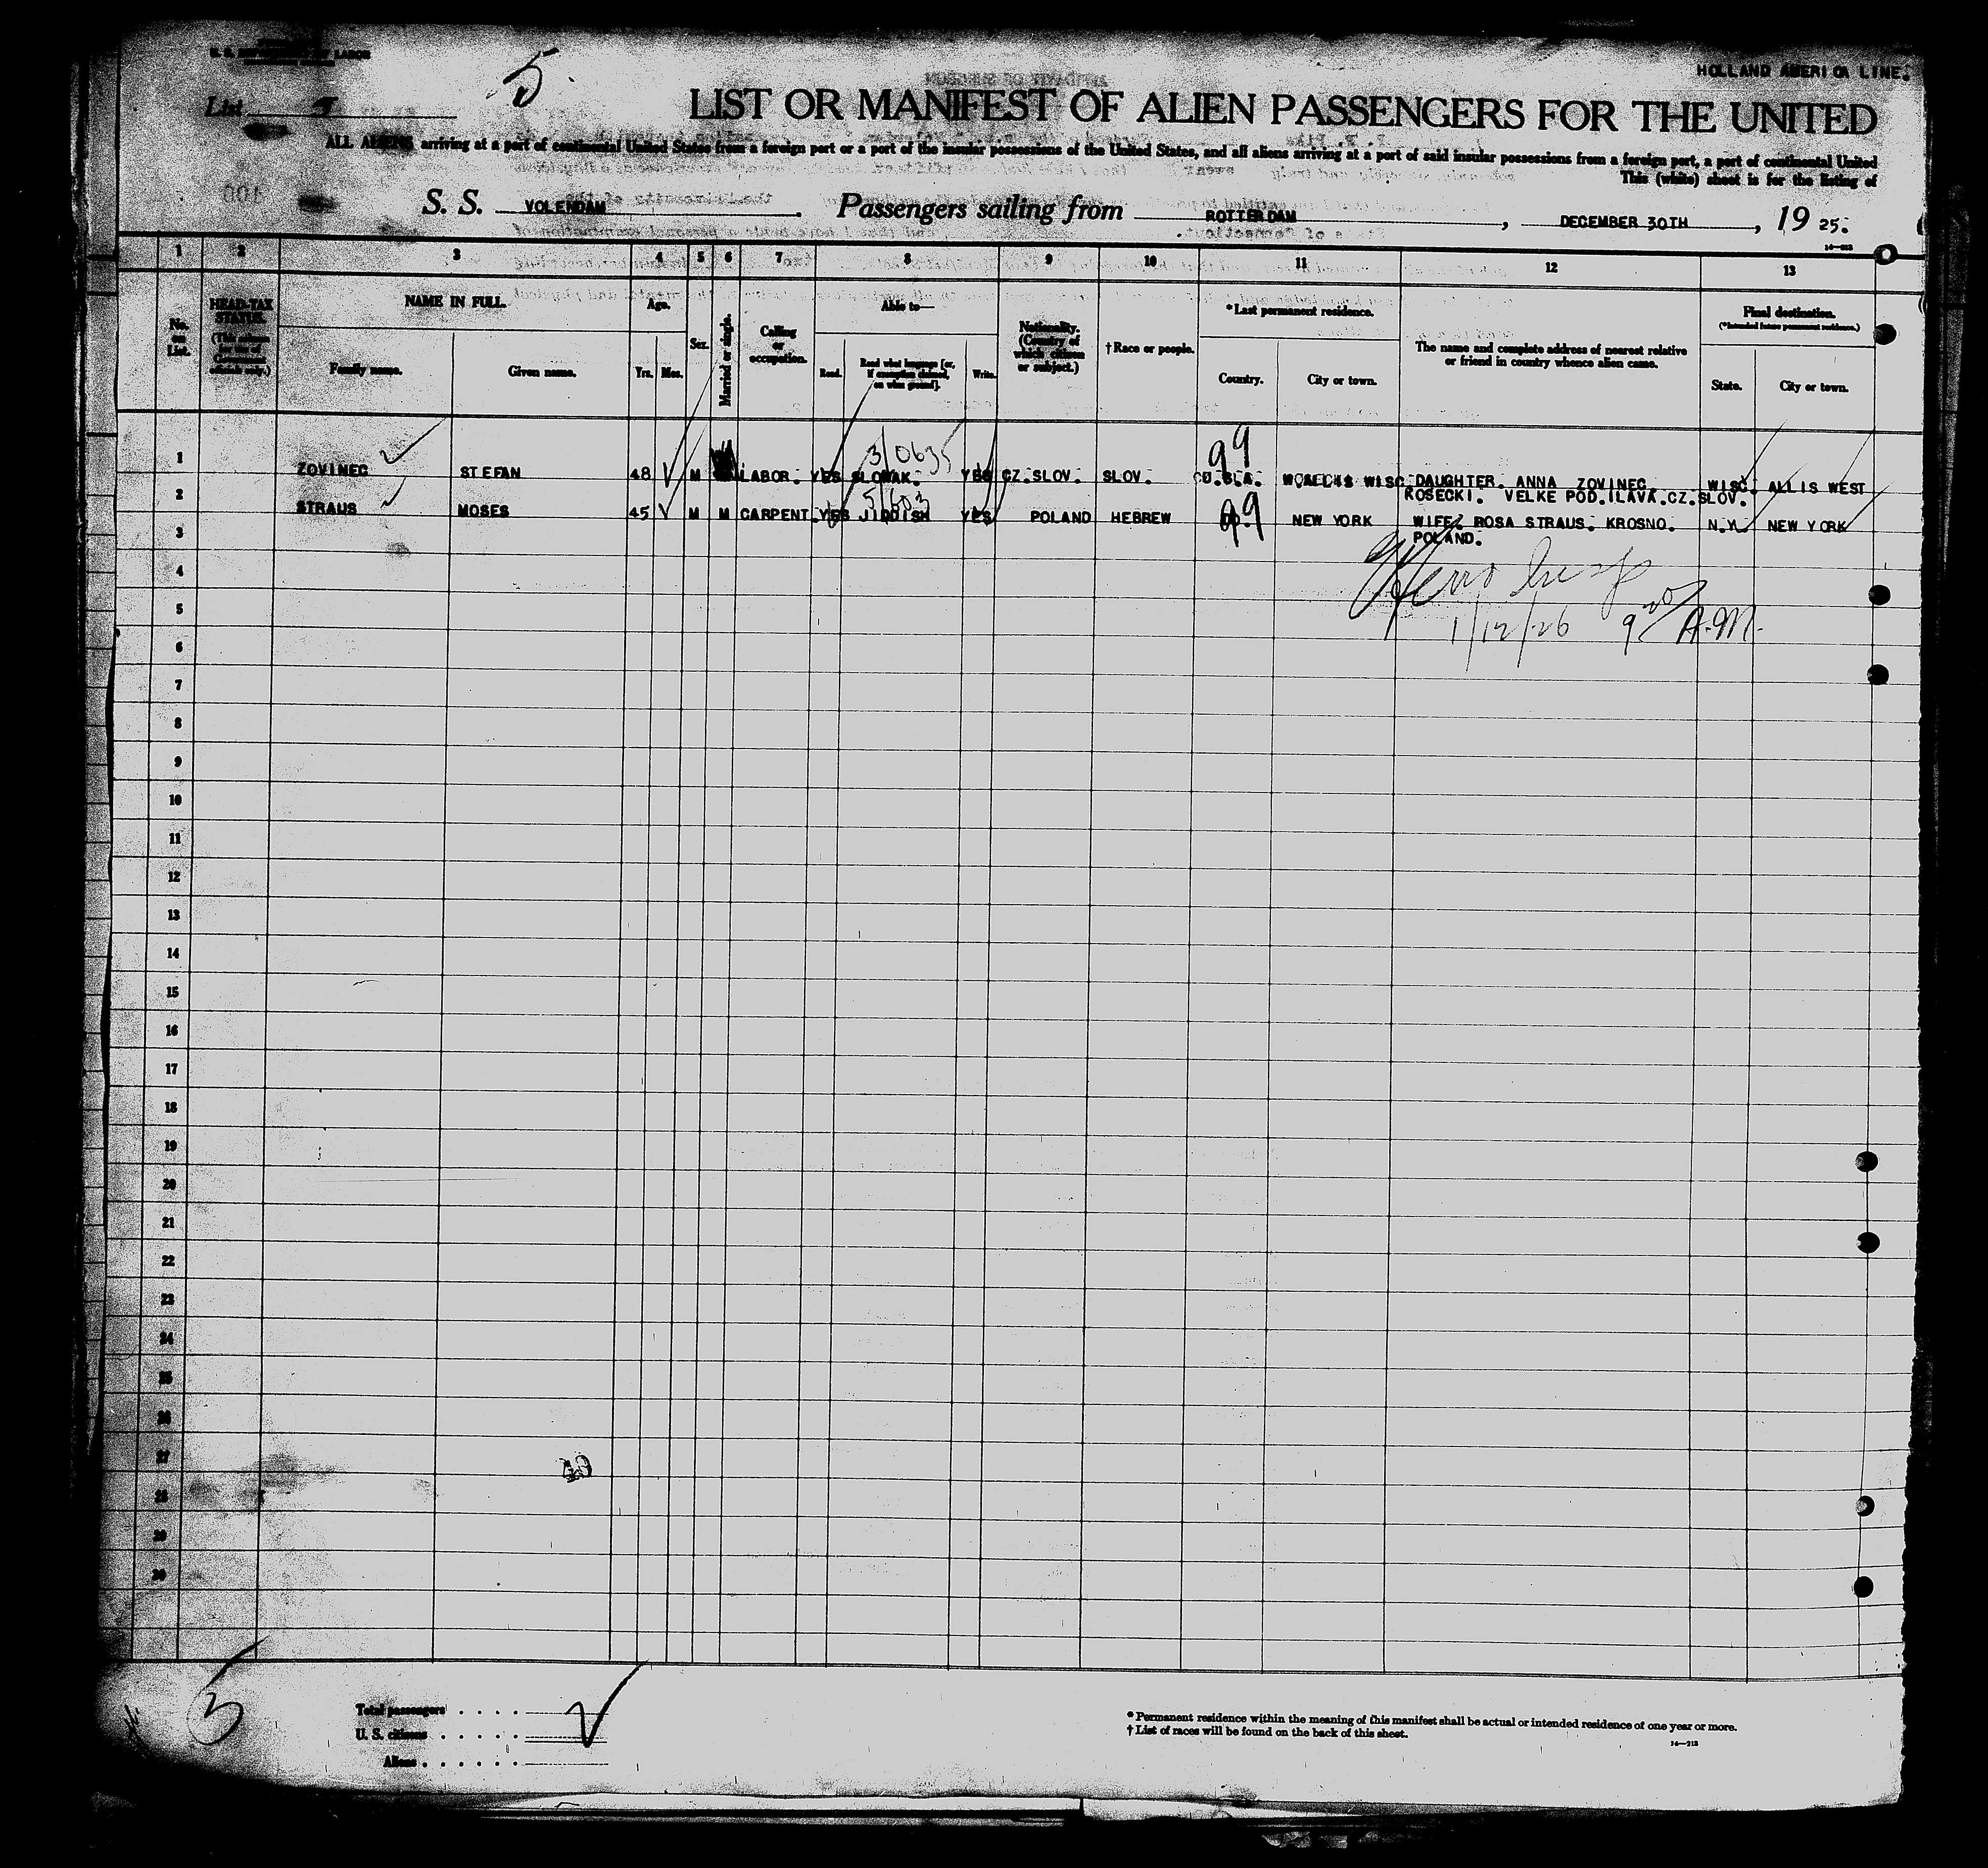 U. S. DEPARTMENT OF LABOR
HOLLAND AMERICA LINE.
5
List 5
LIST OR MANIFEST OF ALIEN PASSENGERS FOR THE UNITED
ALL ALIENS arriving at a port of continental United States from a foreign port or a port of the insular possessions of the United States, and all aliens arriving at a port of said insular possessions from a foreign port, a port of continental United
This (white) sheet is for the listing of
S. S. VOLENDAM. Passengers sailing from ROTTERDAM, DECEMBER 30TH, 19 25.
1 2 3 4 5 6 7 8 9 10 11 12 13
No. on List.
HEAD-TAX STATUS.
NAME IN FULL.
Family name.
Given name.
Age.
Yrs. Mos.
Sex.
Married or single.
Calling or occupation.
Able to—
Read.
Read what language [or, if exemption claimed, on what ground].
Write.
Nationality. (Country of which citizen or subject.)
† Race or people.
* Last permanent residence.
Country.
City or town.
The name and complete address of nearest relative or friend in country whence alien came.
Final destination.
(*Intended future permanent residence.)
State.
City or town.
3/0635
99
1 ZOVINEC STEFAN 48 M LABOR. YES SLOWAK. YES CZ.SLOV. SLOV. WISC DAUGHTER. ANNA ZOVINEC WISC. ALLIS WEST
ROSECKI. VELKE POD.ILAVA.CZ.SLOV.
2 STRAUS MOSES 45 M M CARPENT. YES JIDDISH YES POLAND HEBREW NEW YORK WIFE. ROSA STRAUS. KROSNO. N.Y. NEW YORK
POLAND.
1/12/26 9 20 A.M.
3
4
5
6
7
8
9
10
11
12
13
14
15
16
17
18
19
20
21
22
23
24
25
26
27
28
29
30
Total passengers
U. S. citizens
Aliens
* Permanent residence within the meaning of this manifest shall be actual or intended residence of one year or more.
† List of races will be found on the back of this sheet.
14—213